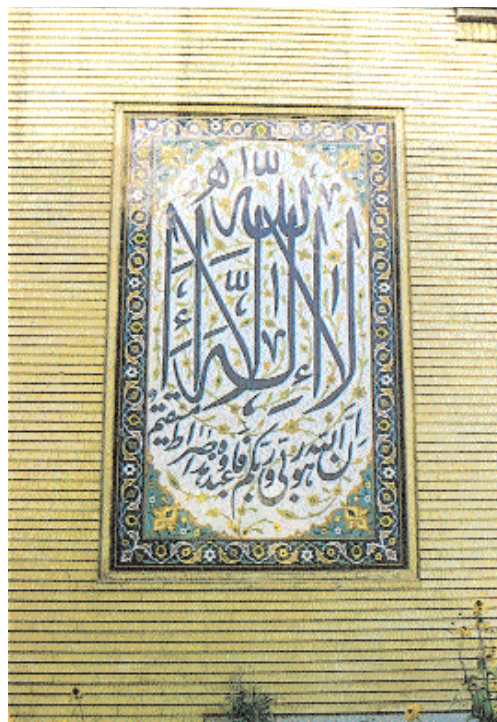 لا إله إلا الله
إن الله هو ربي وربكم فاعبدوه هذا صراط مستقيم